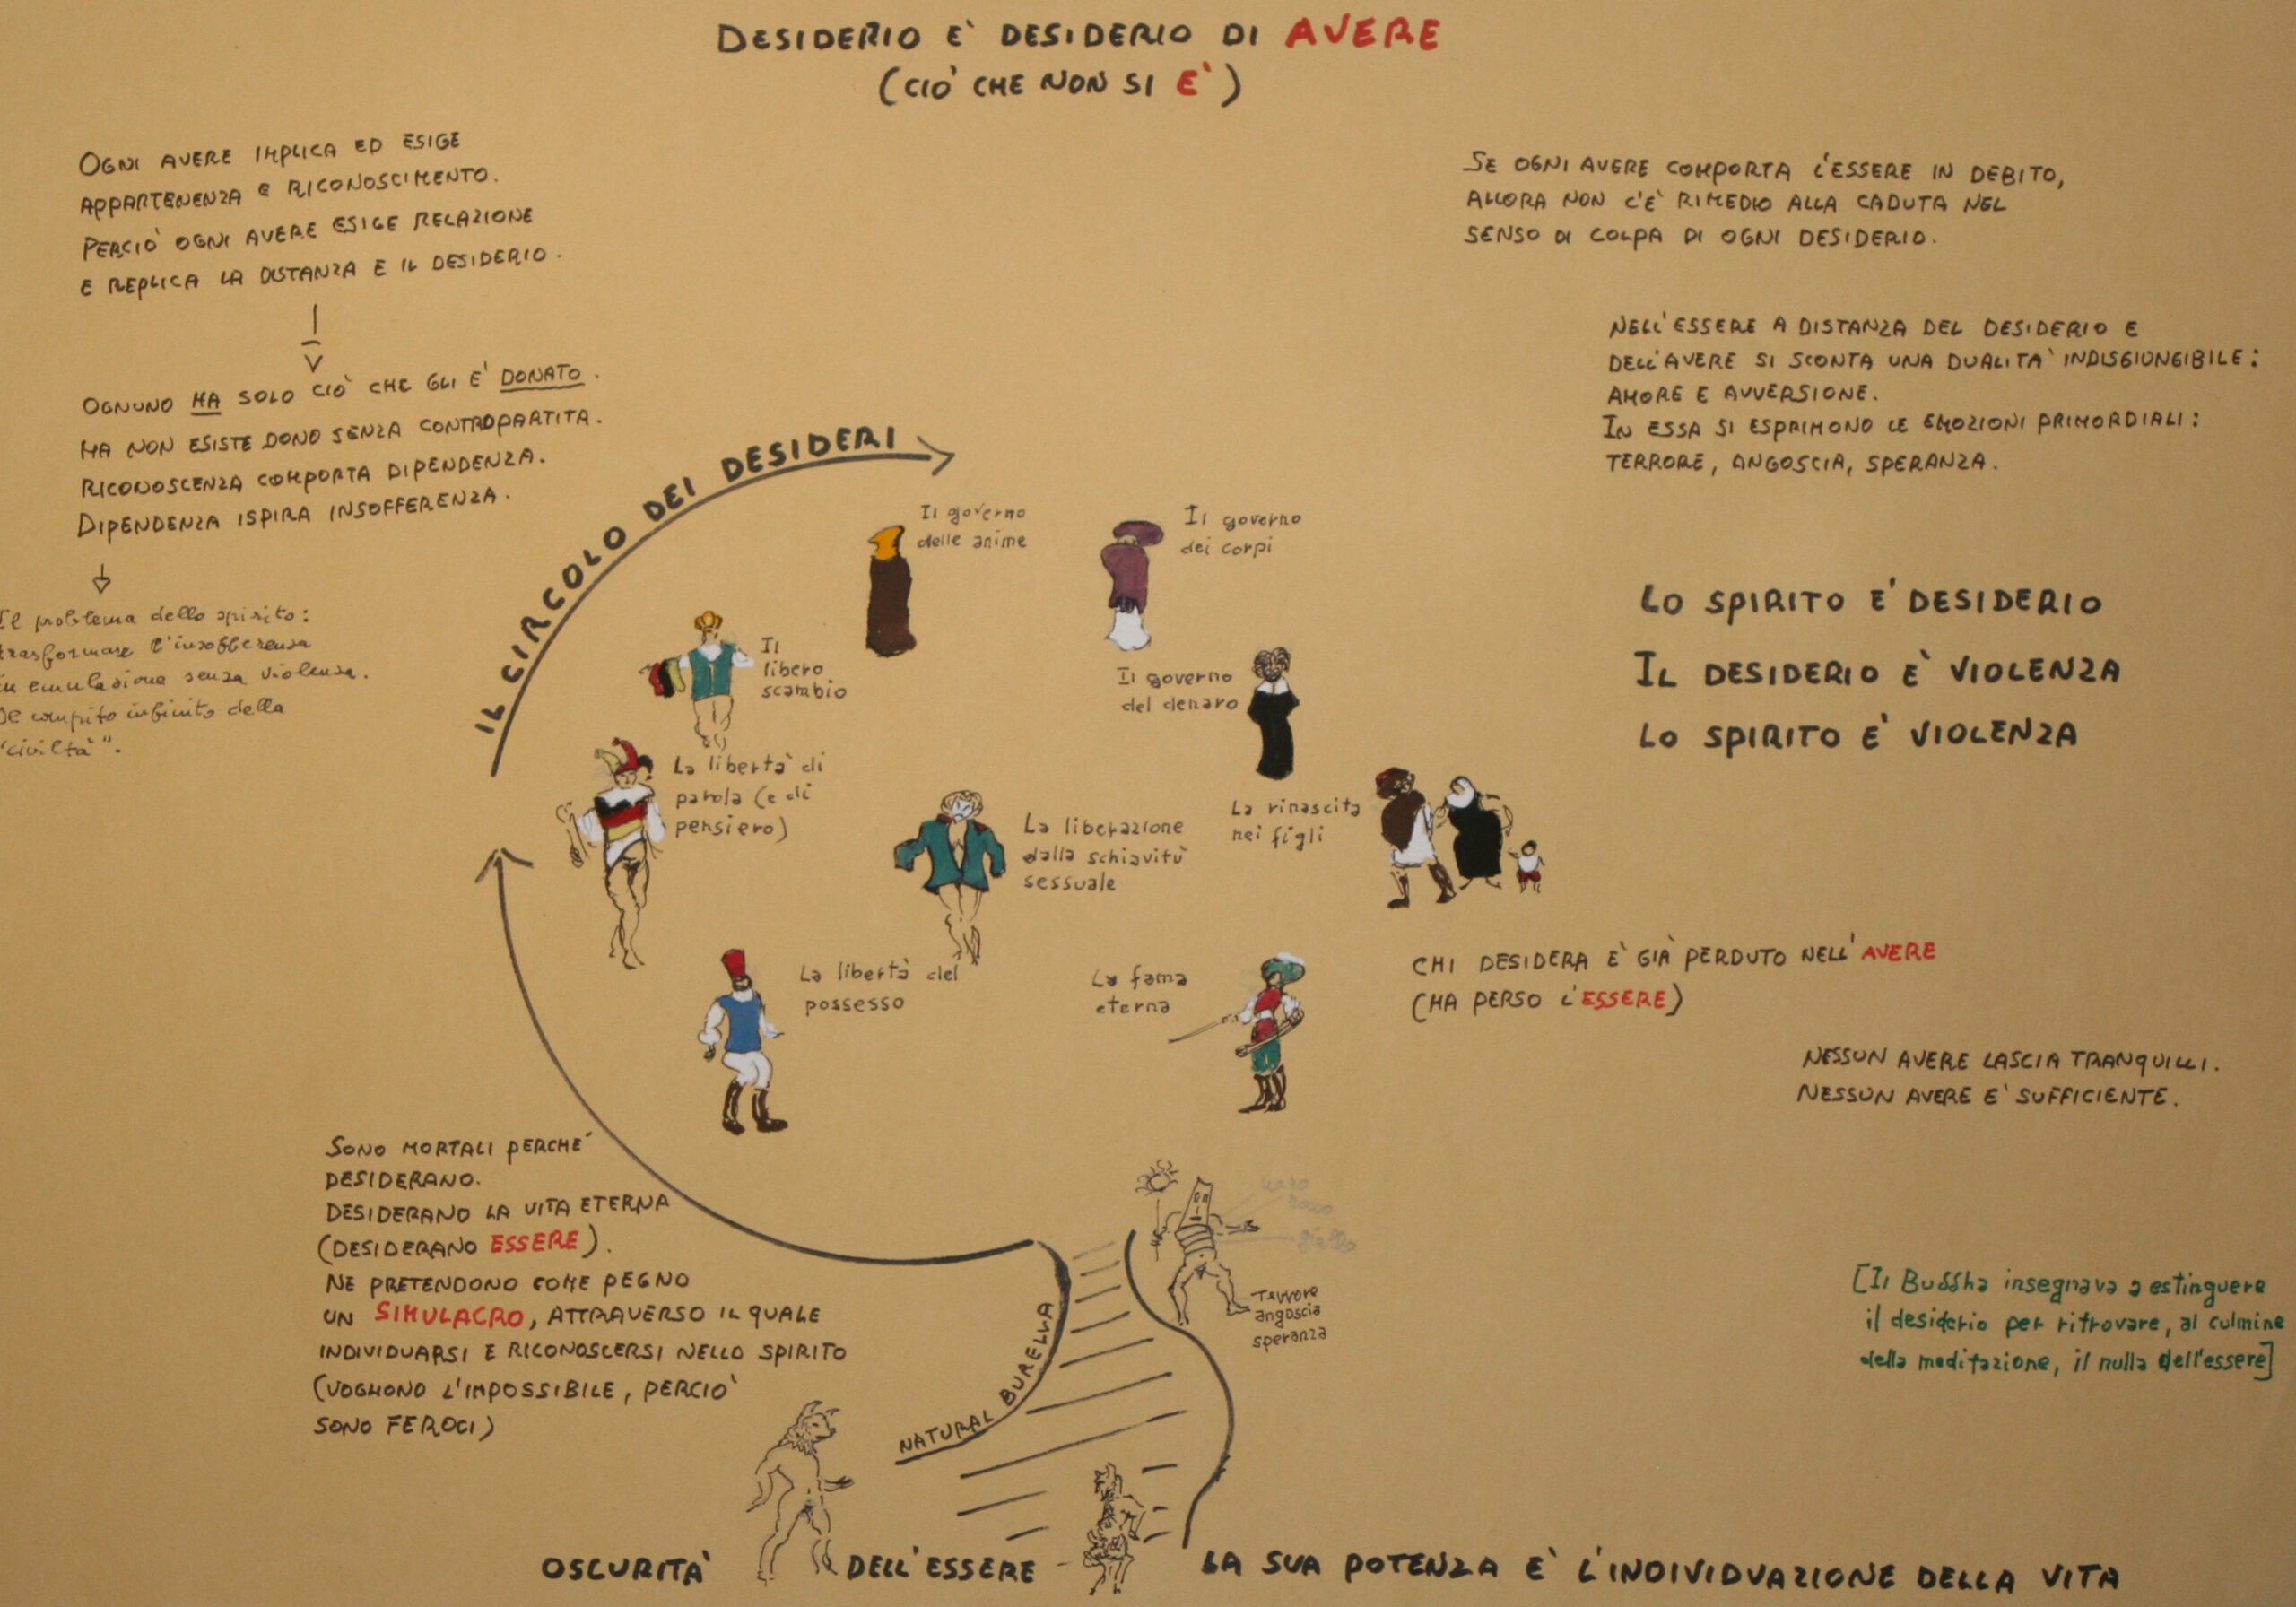 DESIDERIO E' DESIDERIO DI AVERE
(CIO' CHE NON SI E')
OGNI AVERE IMPLICA ED ESIGE
APPARTENENZA E RICONOSCIMENTO.
PERCIO' OGNI AVERE ESIGE RELAZIONE
E REPLICA LA DISTANZA E IL DESIDERIO.
OGNUNO HA SOLO CIO' CHE GLI E' DONATO.
MA NON ESISTE DONO SENZA CONTROPARTITA.
RICONOSCENZA COMPORTA DIPENDENZA.
DIPENDENZA ISPIRA INSOFFERENZA.
Il problema dello spirito:
trasformare l'insofferenza
in emulazione senza violenza.
Il compito infinito della
"civiltà".
SE OGNI AVERE COMPORTA L'ESSERE IN DEBITO,
ALLORA NON C'E' RIMEDIO ALLA CADUTA NEL
SENSO DI COLPA DI OGNI DESIDERIO.
NELL'ESSERE A DISTANZA DEL DESIDERIO E
DELL'AVERE SI SCONTA UNA DUALITA' INDISGIUNGIBILE:
AMORE E AVVERSIONE.
IN ESSA SI ESPRIMONO LE EMOZIONI PRIMORDIALI:
TERRORE, ANGOSCIA, SPERANZA.
LO SPIRITO E' DESIDERIO
IL DESIDERIO E' VIOLENZA
LO SPIRITO E' VIOLENZA
IL CIRCOLO DEI DESIDERI
Il governo
delle anime
Il governo
dei corpi
Il
libero
scambio
Il governo
del denaro
La libertà di
parola (e di
pensiero)
La liberazione
dalla schiavitù
sessuale
La rinascita
nei figli
La libertà del
possesso
La fama
eterna
CHI DESIDERA E' GIÀ PERDUTO NELL'AVERE
(HA PERSO L'ESSERE)
NESSUN AVERE LASCIA TRANQUILLI.
NESSUN AVERE E' SUFFICIENTE.
SONO MORTALI PERCHE'
DESIDERANO.
DESIDERANO LA VITA ETERNA
(DESIDERANO ESSERE).
NE PRETENDONO COME PEGNO
UN SIMULACRO, ATTRAVERSO IL QUALE
INDIVIDUARSI E RICONOSCERSI NELLO SPIRITO
(VOGLIONO L'IMPOSSIBILE, PERCIO'
SONO FEROCI)
rosso
giallo
Terrore
angoscia
speranza
NATURAL BURELLA
[Il Buddha insegnava a estinguere
il desiderio per ritrovare, al culmine
della meditazione, il nulla dell'essere]
OSCURITA' DELL'ESSERE - LA SUA POTENZA E' L'INDIVIDUAZIONE DELLA VITA